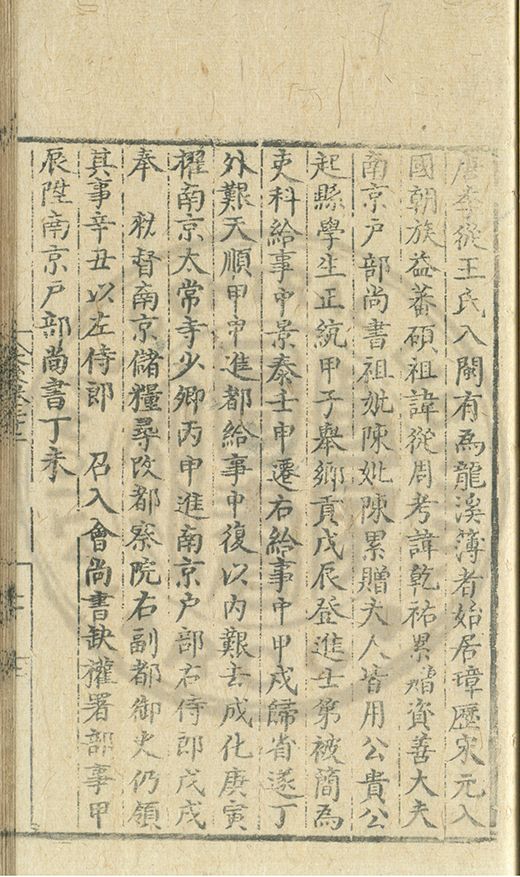 唐季從王氏入閩有為龍溪簿者始居璋歷宋元入
國朝族益蕃碩祖諱從周考諱乾祐累贈資善大夫
南京戶部尚書祖妣陳妣陳累贈夫人皆用公貴公
起縣學生正統甲子舉鄉貢戊辰登進士第被簡為
吏科給事中景泰壬申遷右給事中甲戌歸省遂丁
外艱天順甲申進都給事中復以內艱去成化庚寅
擢南京太常寺少卿丙申進南京戶部右侍郎戊戌
奉 敕督南京儲糧尋改都察院右副都御史仍領
其事辛丑以左侍郎 召入會尚書缺權署部事甲
辰陞南京戶部尚書丁未